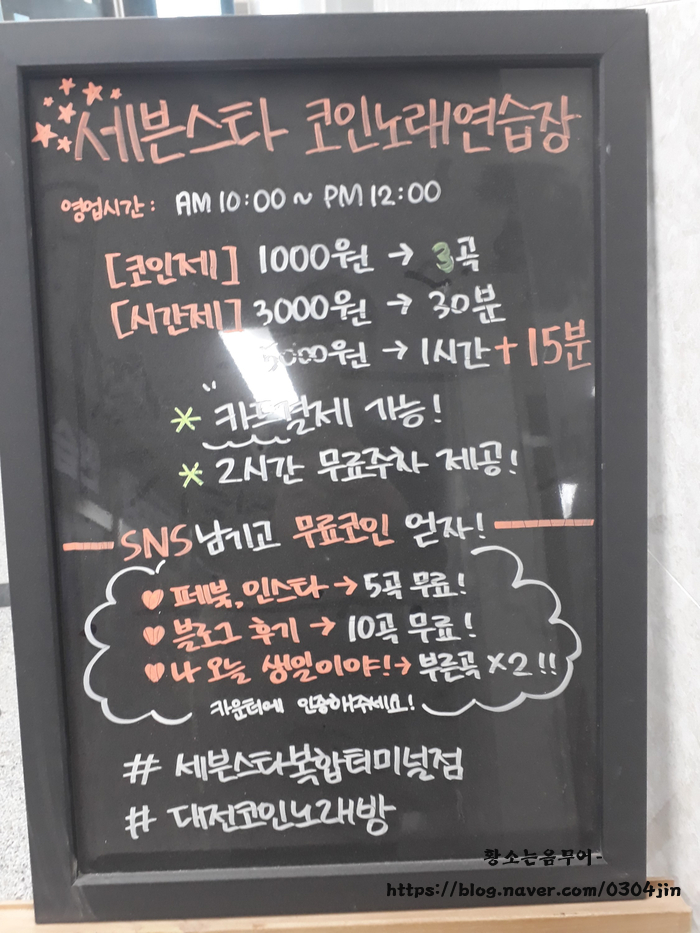 세븐스타 코인노래연습장
영업시간: AM 10:00 ~ PM 12:00
[코인제] 1000원 → 3곡
[시간제] 3000원 → 30분
5000원 → 1시간 + 15분
* 카드결제 가능!
* 2시간 무료주차 제공!
SNS 남기고 무료코인 얻자!
♥ 페북, 인스타 → 5곡 무료!
♥ 블로그 후기 → 10곡 무료!
♥ 나 오늘 생일이야! → 부른곡 X2 !!
카운터에 인증해주세요!
# 세븐스타복합터미널점
# 대전코인노래방
황소는음무어-
https://blog.naver.com/0304jin